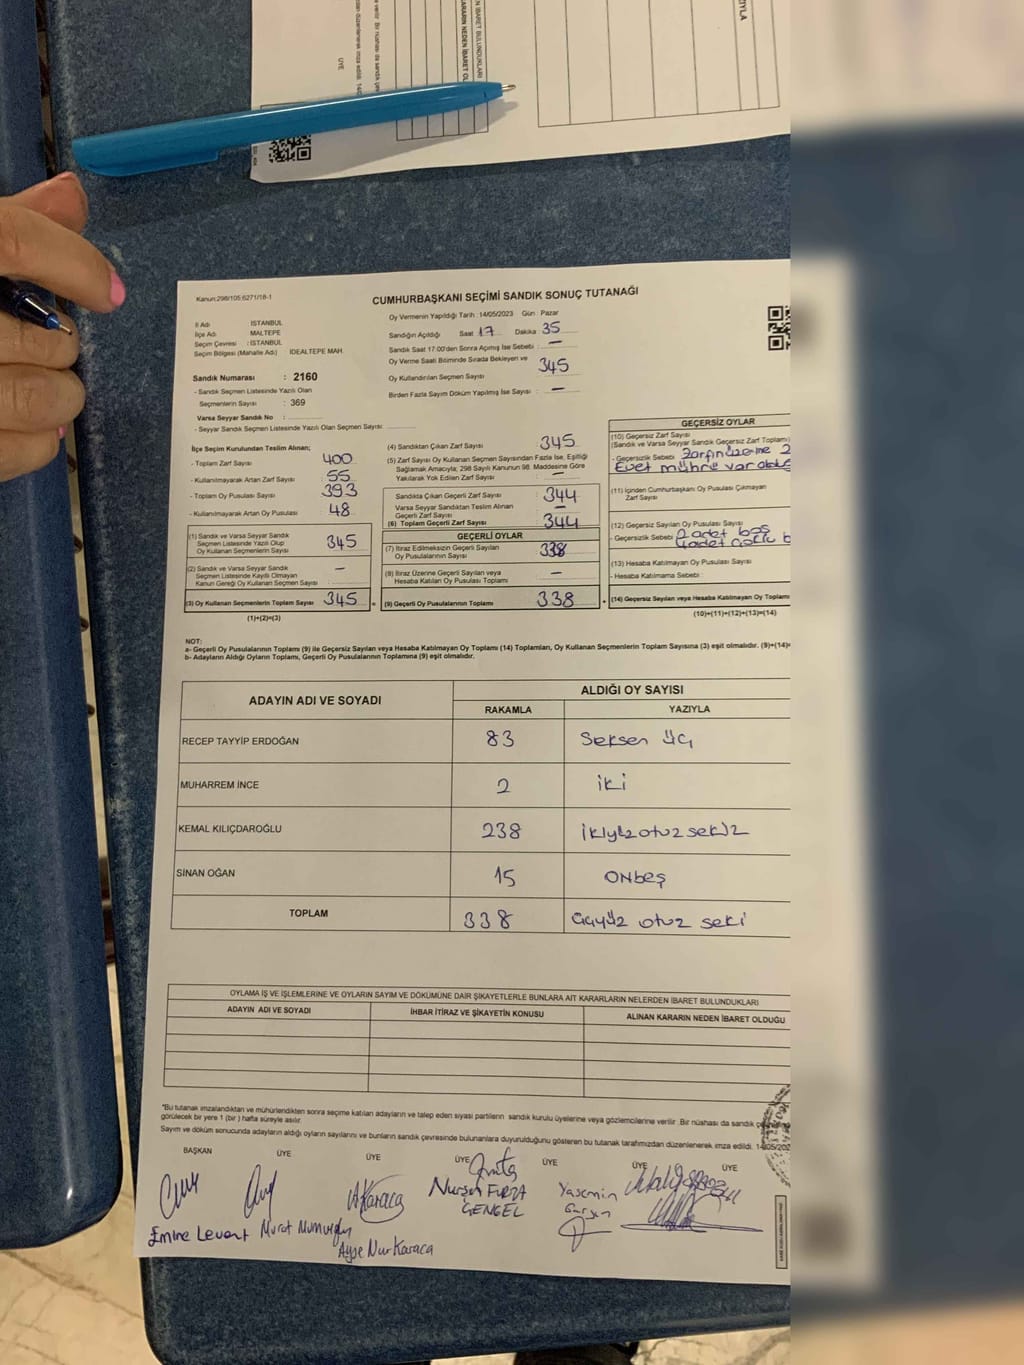 Kanun:298/105;6271/18-1
CUMHURBAŞKANI SEÇİMİ SANDIK SONUÇ TUTANAĞI
İl Adı : İSTANBUL
İlçe Adı : MALTEPE
Seçim Çevresi : İSTANBUL
Seçim Bölgesi (Mahalle Adı) : İDEALTEPE MAH.
Sandık Numarası : 2160
- Sandık Seçmen Listesinde Yazılı Olan
Seçmenlerin Sayısı : 369
Varsa Seyyar Sandık No :
- Seyyar Sandık Seçmen Listesinde Yazılı Olan Seçmen Sayısı :
Oy Vermenin Yapıldığı Tarih :14/05/2023 Gün : Pazar
Sandığın Açıldığı Saat 17 Dakika 35
Sandık Saat 17.00'den Sonra Açılmış İse Sebebi : —
Oy Verme Saati Bitiminde Sırada Bekleyen ve
Oy Kullandırılan Seçmen Sayısı : 345
Birden Fazla Sayım Döküm Yapılmış İse Sayısı : —
İlçe Seçim Kurulundan Teslim Alınan;
- Toplam Zarf Sayısı : 400
- Kullanılmayarak Artan Zarf Sayısı : 55
- Toplam Oy Pusulası Sayısı : 393
- Kullanılmayarak Artan Oy Pusulası : 48
(1) Sandık ve Varsa Seyyar Sandık
Seçmen Listesinde Yazılı Olup
Oy Kullanan Seçmenlerin Sayısı : 345
(2) Sandık ve Varsa Seyyar Sandık
Seçmen Listesinde Kayıtlı Olmayan
Kanun Gereği Oy Kullanan Seçmen Sayısı : —
(3) Oy Kullanan Seçmenlerin Toplam Sayısı 345 =
(1)+(2)=(3)
(4) Sandıktan Çıkan Zarf Sayısı : 345
(5) Zarf Sayısı Oy Kullanan Seçmen Sayısından Fazla İse, Eşitliği
Sağlamak Amacıyla; 298 Sayılı Kanunun 98. Maddesine Göre
Yakılarak Yok Edilen Zarf Sayısı : —
Sandıkta Çıkan Geçerli Zarf Sayısı : 344
Varsa Seyyar Sandıktan Teslim Alınan
Geçerli Zarf Sayısı : —
(6) Toplam Geçerli Zarf Sayısı : 344
GEÇERLİ OYLAR
(7) İtiraz Edilmeksizin Geçerli Sayılan
Oy Pusulalarının Sayısı : 338
(8) İtiraz Üzerine Geçerli Sayılan veya
Hesaba Katılan Oy Pusulası Toplamı : —
(9) Geçerli Oy Pusulalarının Toplamı : 338 +
GEÇERSİZ OYLAR
(10) Geçersiz Zarf Sayısı
(Sandık ve Varsa Seyyar Sandık Geçersiz Zarf Toplamı)
- Geçersizlik Sebebi : Zarfın üzerine 2
Evet mührü var
(11) İçinden Cumhurbaşkanı Oy Pusulası Çıkmayan
Zarf Sayısı
(12) Geçersiz Sayılan Oy Pusulası Sayısı
- Geçersizlik Sebebi : 2 adet boş
(13) Hesaba Katılmayan Oy Pusulası Sayısı
- Hesaba Katılmama Sebebi :
(14) Geçersiz Sayılan veya Hesaba Katılmayan Oy Toplamı
(10)+(11)+(12)+(13)=(14)
NOT:
a- Geçerli Oy Pusulalarının Toplamı (9) ile Geçersiz Sayılan veya Hesaba Katılmayan Oy Toplamı (14) Toplamları, Oy Kullanan Seçmenlerin Toplam Sayısına (3) eşit olmalıdır. (9)+(14)=
b- Adayların Aldığı Oyların Toplamı, Geçerli Oy Pusulalarının Toplamına (9) eşit olmalıdır.
ADAYIN ADI VE SOYADI
ALDIĞI OY SAYISI
RAKAMLA YAZIYLA
RECEP TAYYİP ERDOĞAN 83 Seksen üç
MUHARREM İNCE 2 iki
KEMAL KILIÇDAROĞLU 238 ikiyüz otuz sekiz
SİNAN OĞAN 15 onbeş
TOPLAM 338 üçyüz otuz seki
OYLAMA İŞ VE İŞLEMLERİNE VE OYLARIN SAYIM VE DÖKÜMÜNE DAİR ŞİKAYETLERLE BUNLARA AİT KARARLARIN NELERDEN İBARET BULUNDUKLARI
ADAYIN ADI VE SOYADI İHBAR İTİRAZ VE ŞİKAYETİN KONUSU ALINAN KARARIN NEDEN İBARET OLDUĞU
*Bu tutanak imzalandıktan ve mühürlendikten sonra seçime katılan adayların ve talep eden siyasi partilerin sandık kurulu üyelerine veya gözlemcilerine verilir. Bir nüshası da sandık
görülecek bir yere 1 (bir) hafta süreyle asılır.
Sayım ve döküm sonucunda adayların aldığı oyların sayılarını ve bunların sandık çevresinde bulunanlara duyurulduğunu gösteren bu tutanak tarafımızdan düzenlenerek imza edildi. 14/05/202
BAŞKAN ÜYE ÜYE ÜYE ÜYE ÜYE ÜYE
Emine Levent Murat
A.Karaca
Ayşe Nur Karaca
Nurşen
GENGEL
Yasemin